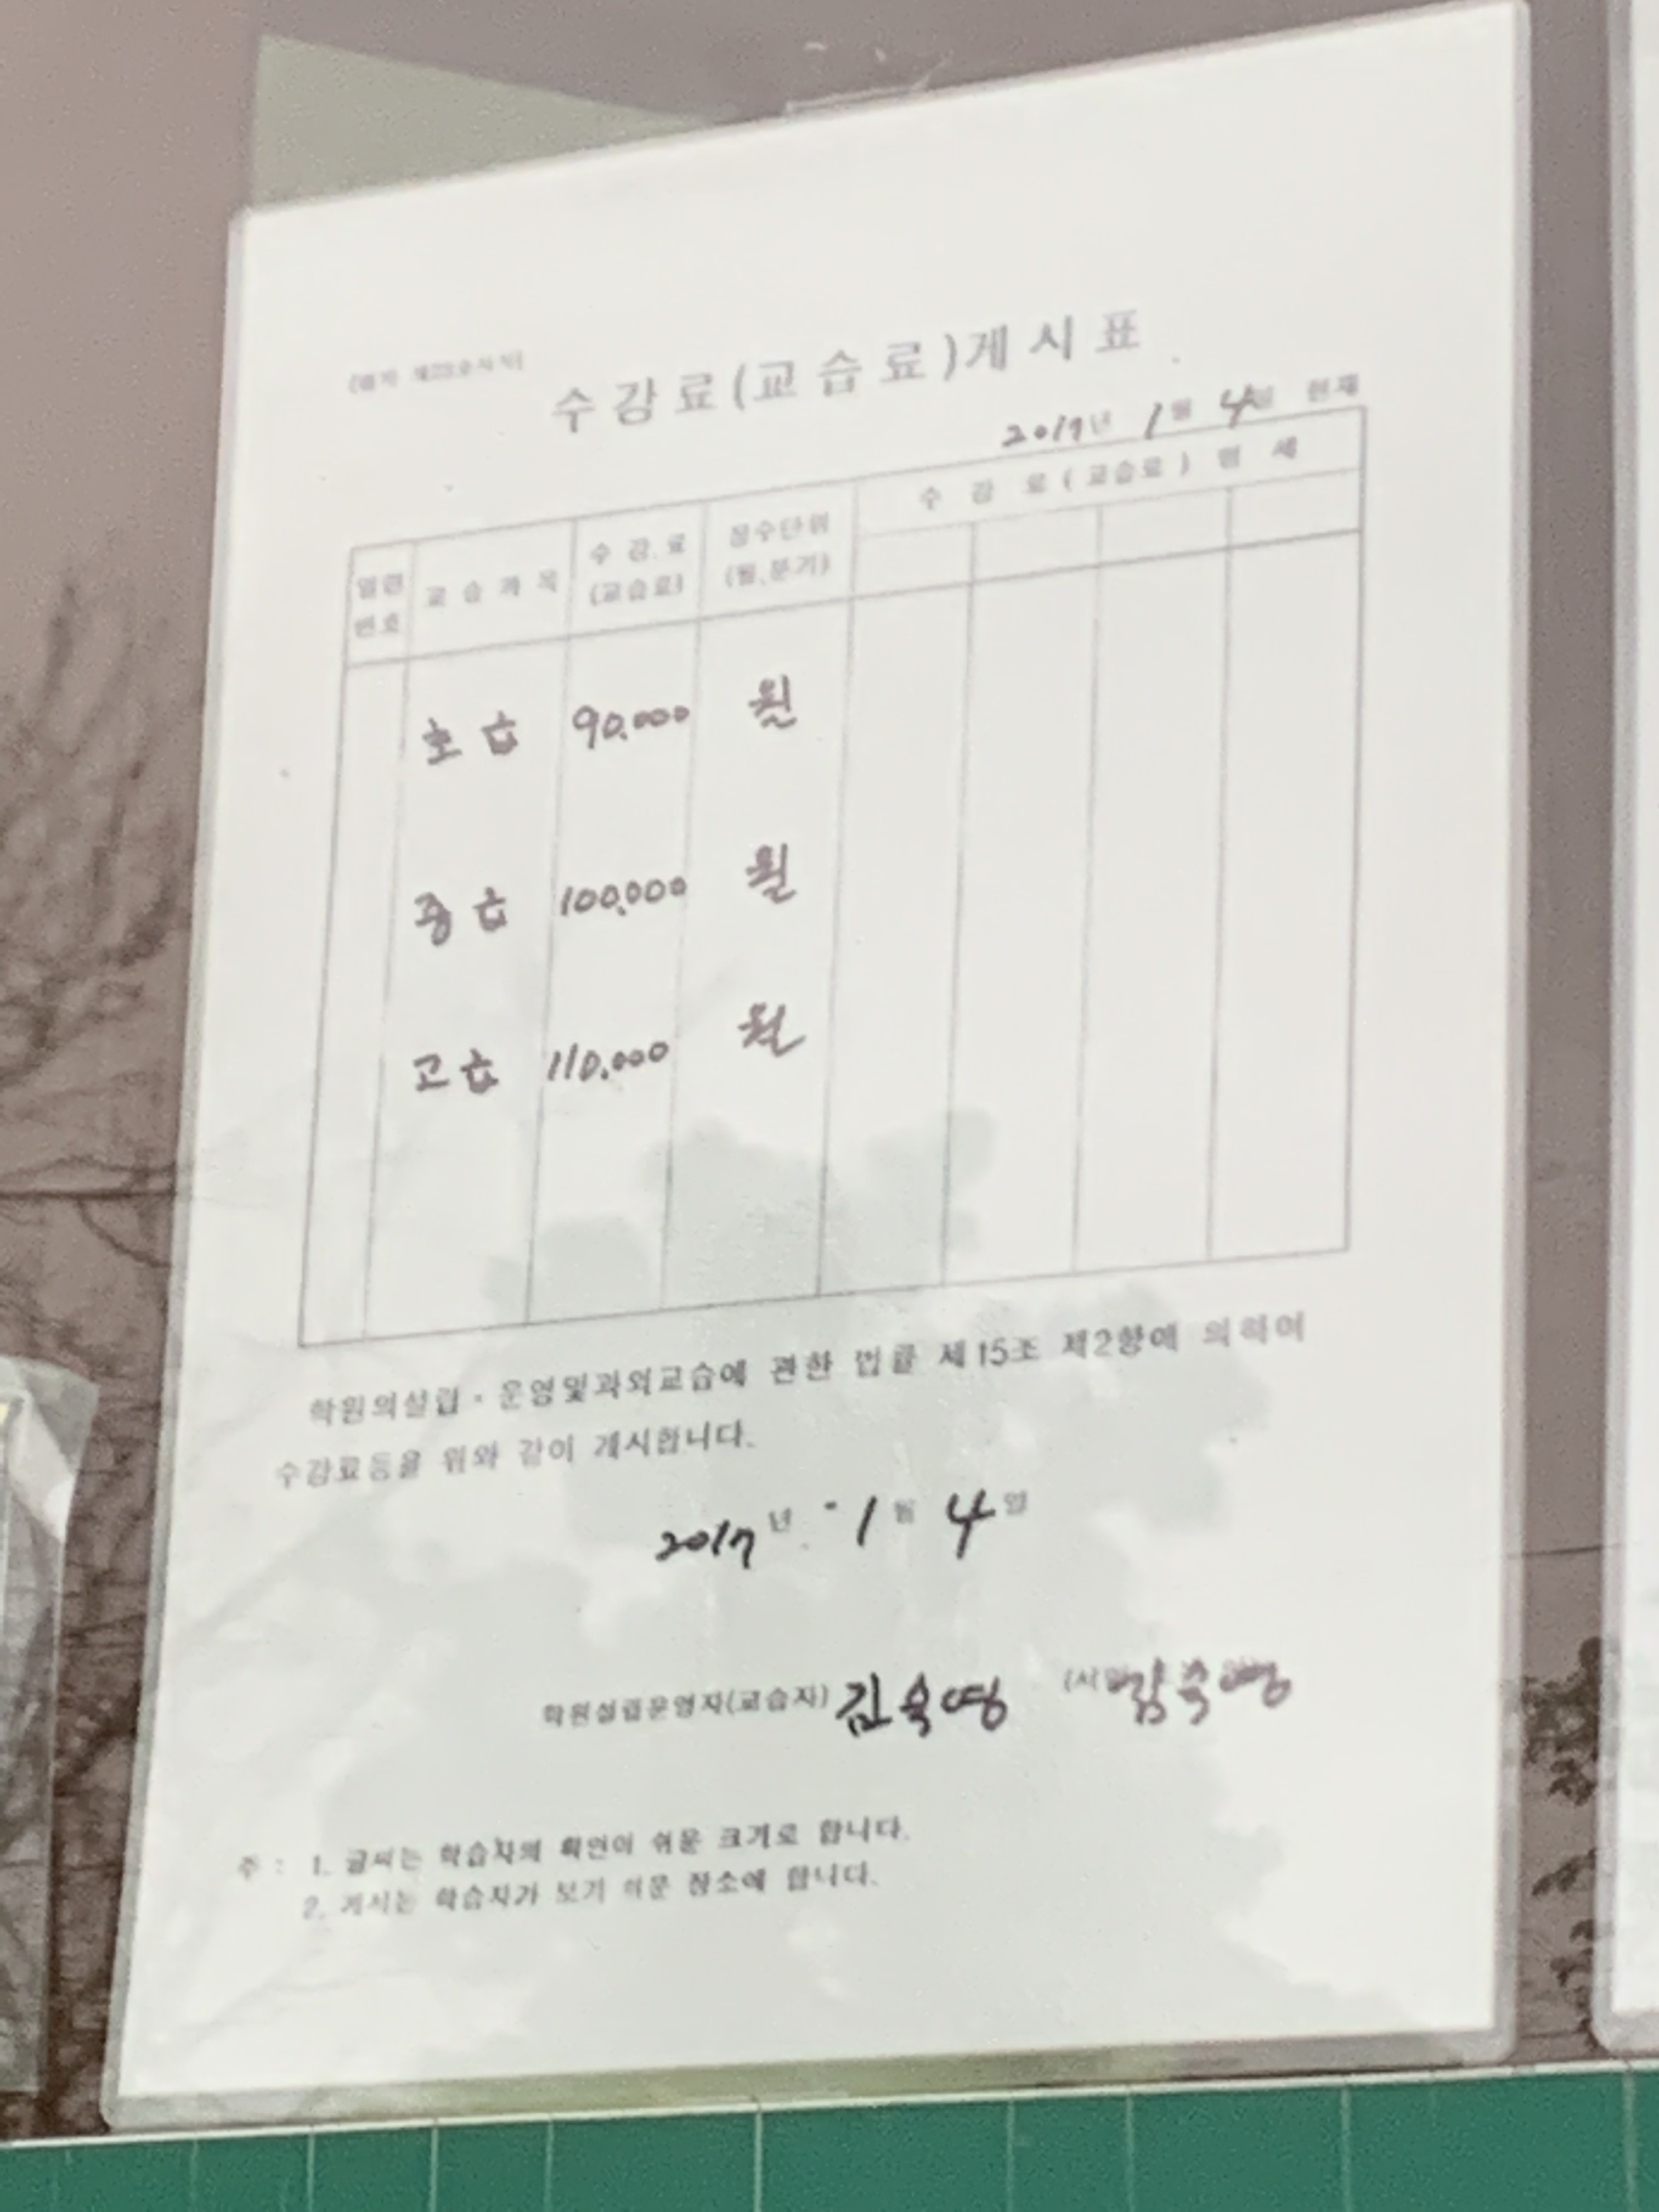 (별지 제23호서식)
수강료(교습료)게시표
2017년 1월 4일 현재
일련번호 교습과목 수강료(교습료) 징수단위(월,분기) 수강료(교습료) 명세
초급 90.000 월
중급 100.000 월
고급 110.000 월
학원의설립·운영및과외교습에 관한 법률 제15조 제2항에 의하여
수강료등을 위와 같이 게시합니다.
2017년 1월 4일
학원설립운영자(교습자) 김숙영 (서명 김숙영
주 : 1. 글씨는 학습자의 확인이 쉬운 크기로 합니다.
2. 게시는 학습자가 보기 쉬운 장소에 합니다.